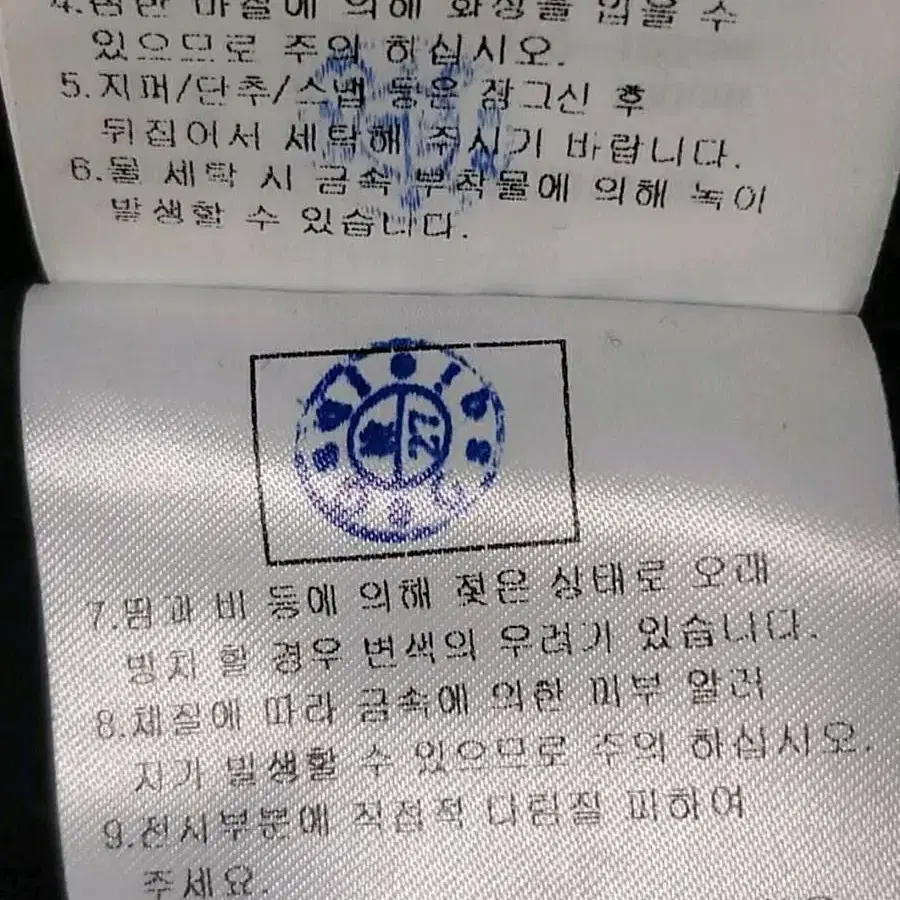 4.땀만 마찰에 의해 화상을 입을 수
있으므로 주의 하십시오.
5.지퍼/단추/스냅 등은 잠그신 후
뒤집어서 세탁해 주시기 바랍니다.
6.물 세탁 시 금속 부착물에 의해 녹이
발생할 수 있습니다.
27
7.땀과 비 등에 의해 젖은 상태로 오래
방치 할 경우 변색의 우려가 있습니다.
8.체질에 따라 금속에 의한 피부 알러
지가 발생할 수 있으므로 주의 하십시오.
9.전사부분에 직접적 다림질 피하여
주세요.